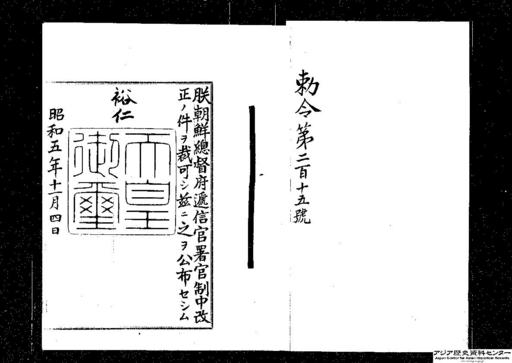 勅令第二百十五號
朕朝鮮總督府遞信官署官制中改
正ノ件ヲ裁可シ茲ニ之ヲ公布セシム
裕仁
天皇
御璽
昭和五年十一月四日
アジア歴史資料センター
Japan Center for Asian Historical Records